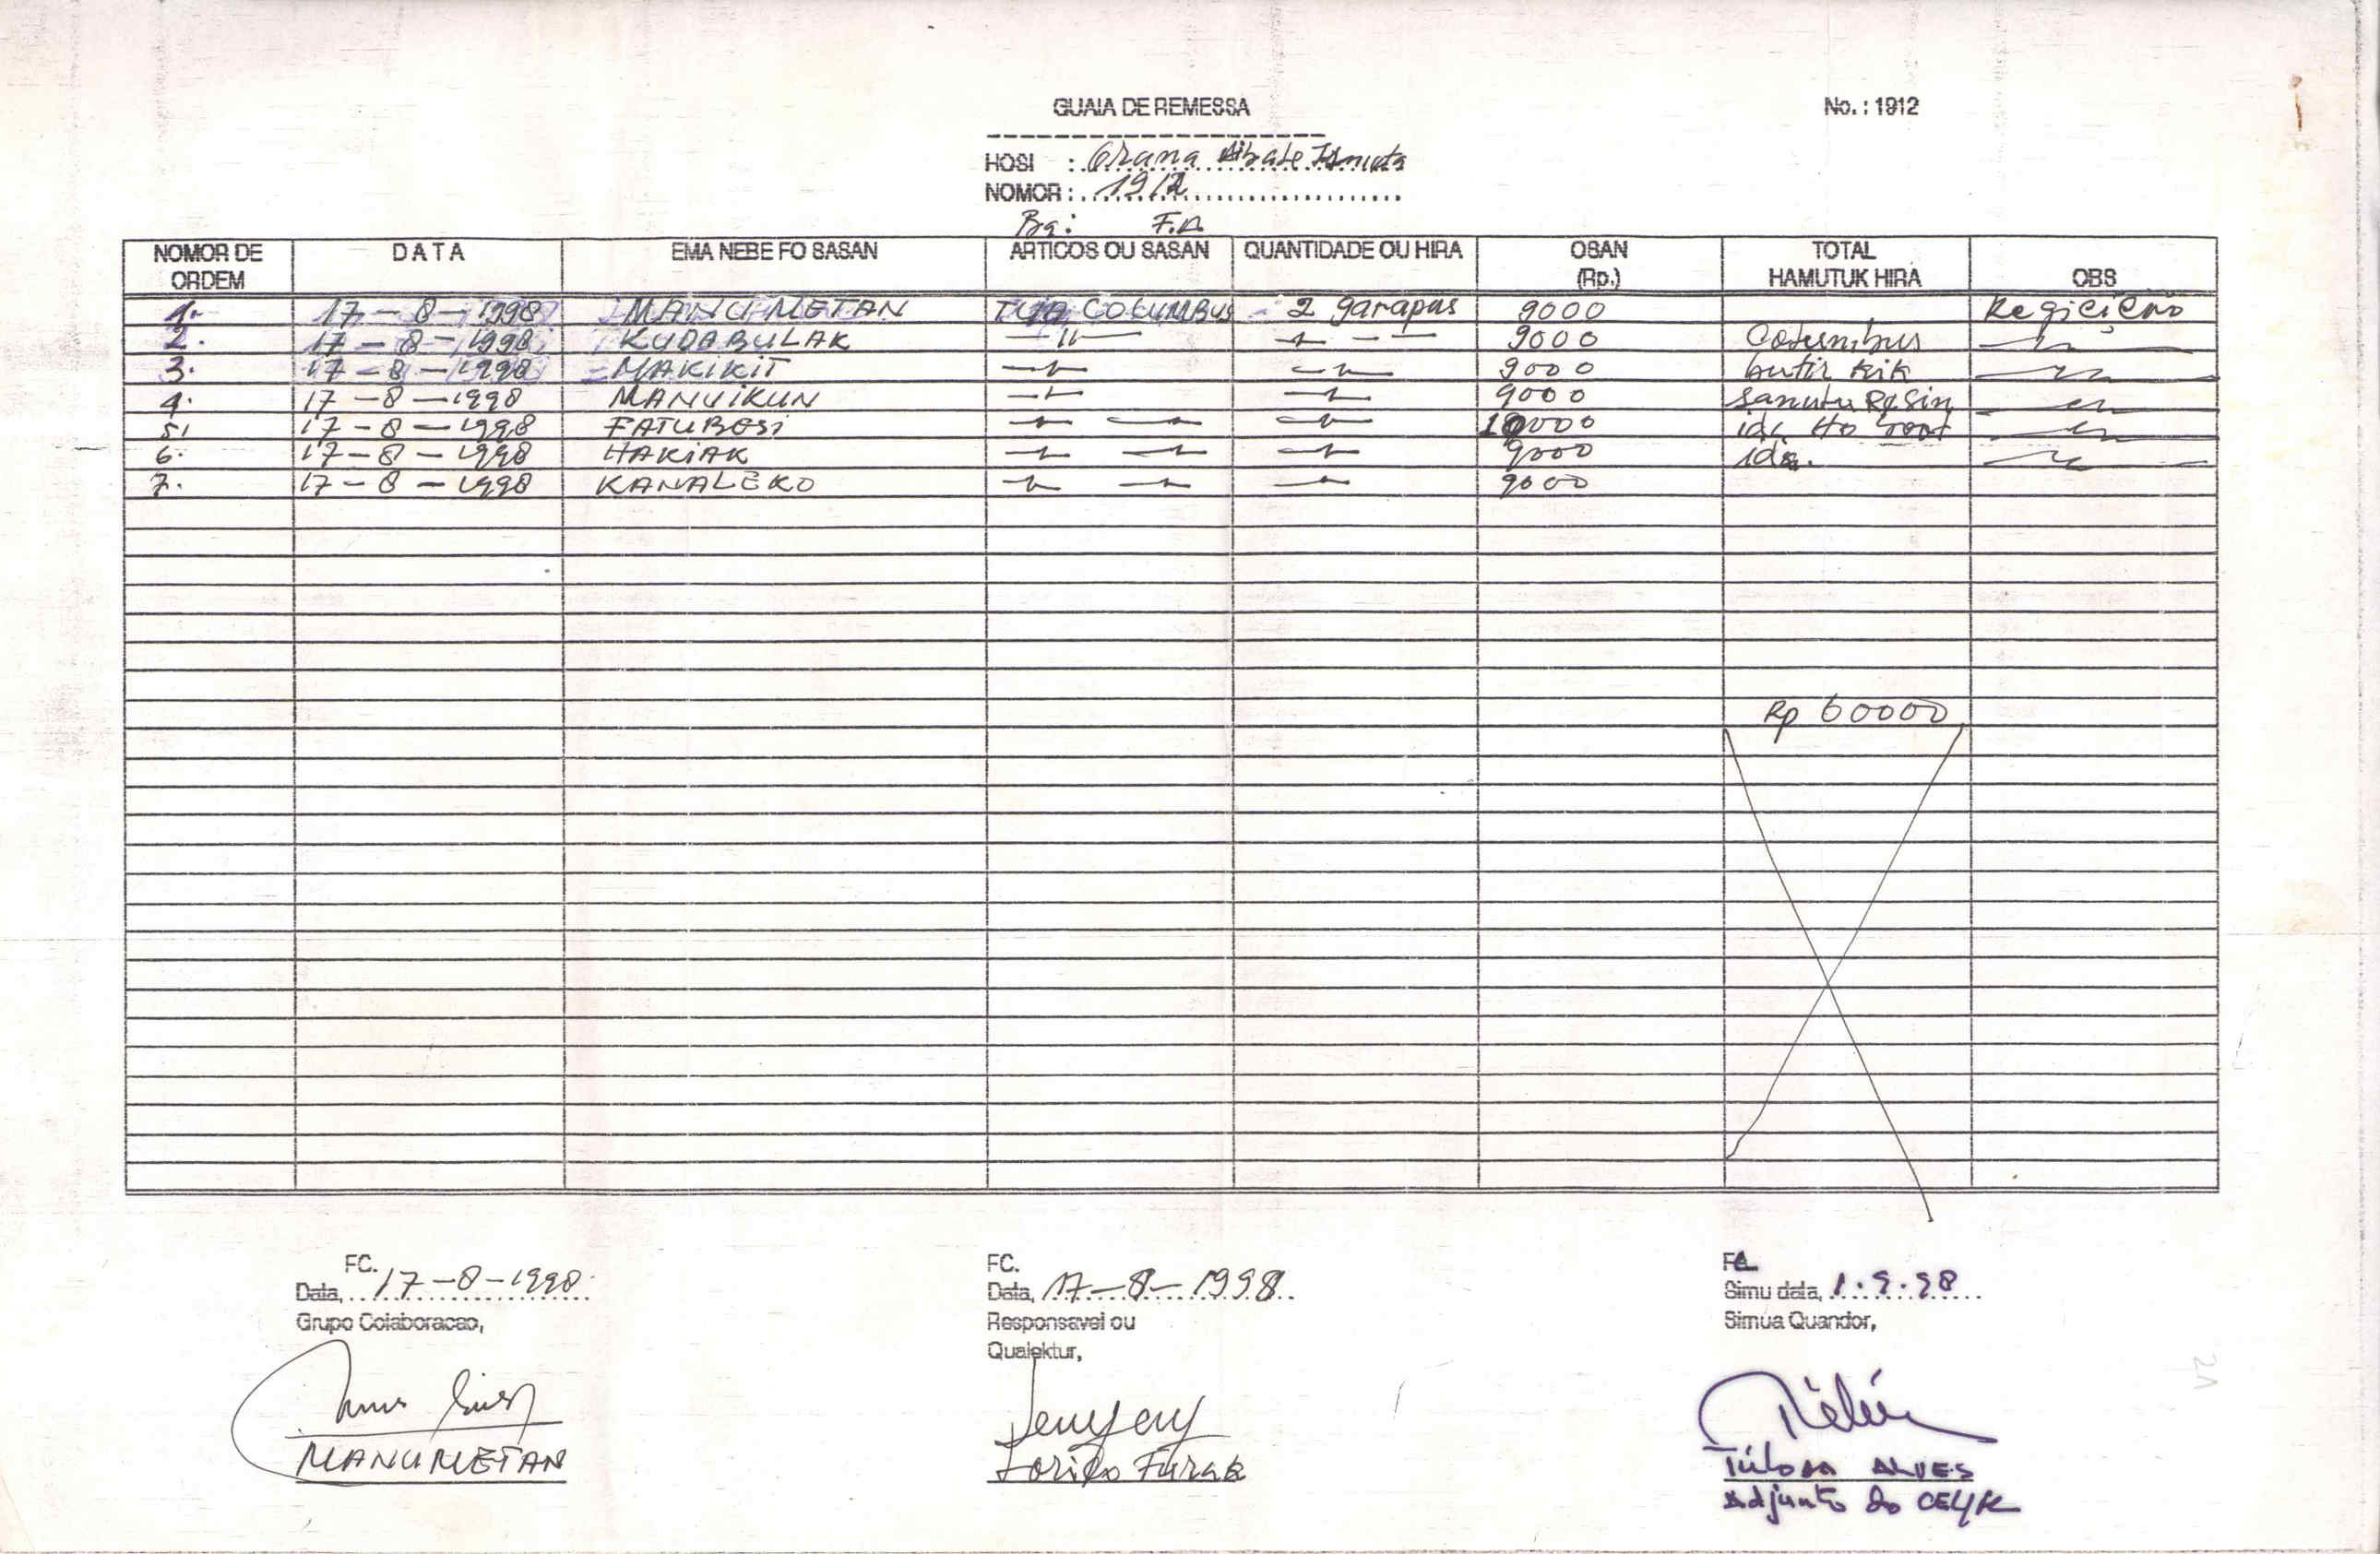 GUAIA DE REMESSA
No. : 1912
HOSI :
NOMOR : 1912
Ba: F.A
NOMOR DE ORDEM DATA EMA NEBE FO SASAN ARTICOS OU SASAN QUANTIDADE OU HIRA OSAN (Rp.) TOTAL HAMUTUK HIRA OBS
1. 17-8-1998 MANUMETAN TUA COLUMBUS 2 garapas 9000
2. 17-8-1998 KUDABULAK 9000 Columbus
3. 17-8-1998 MAKIKIT 9000 butir kik
4. 17-8-1998 MANUIKUN 9000 sanulu Resin
5. 17-8-1998 FATUBESI 10000 ida Ho
6. 17-8-1998 HAKIAK 9000 ida.
7. 17-8-1998 KANALEKO 9000
Rp 60000
FC.
Data, 17-8-1998
Grupo Colaboracao,
MANUMETAN
FC.
Data, 17-8-1998
Responsavel ou
Qualektur,
Lorico Furak
Simu data, 1.9.98
Simua Quandor,
ALVES
Adjunto do